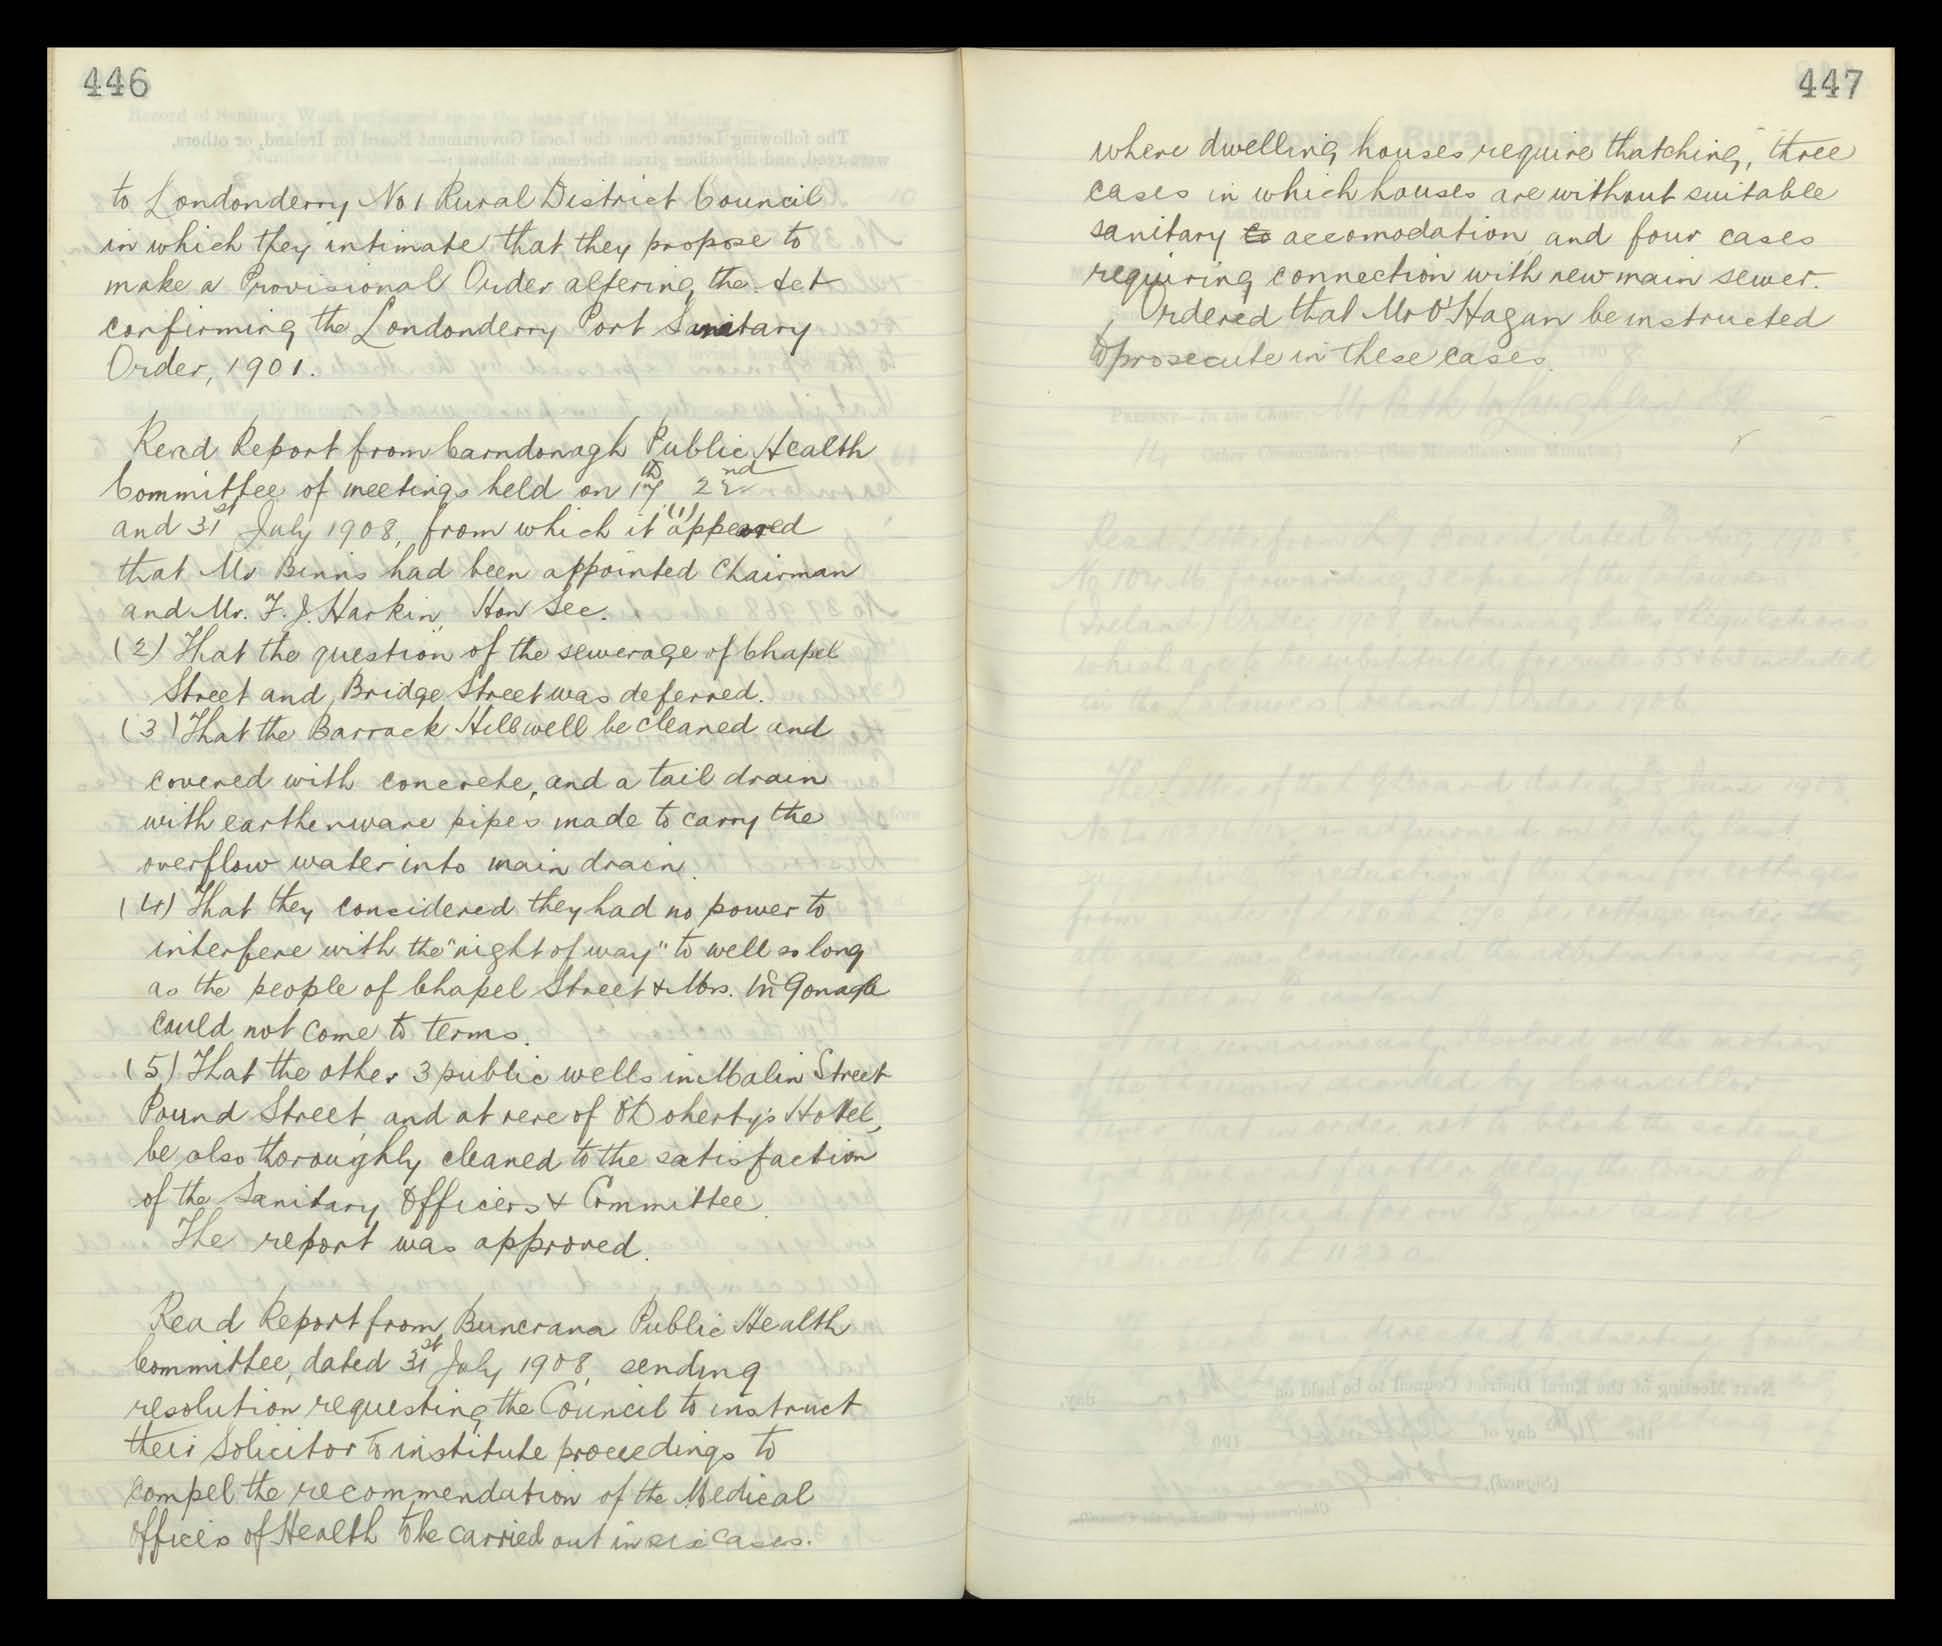 446
to Londonderry No 1 Rural District Council
in which they intimate that they propose to
make a Provisional Order altering the Act
confirming the Londonderry Port Sanitary
Order, 1901.
Read Report from Carndonagh Public Health
Committee of meetings held on 17th 22nd
and 31st July 1908, from which it (1) appeared
that Mr Binns had been appointed Chairman
and Mr. F. J. Harkin, Hon Sec.
(2) That the question of the sewerage of Chapel
Street and Bridge Street was deferred.
(3) That the Barrack Hill well be cleaned and
covered with concrete, and a tail drain
with earthenware pipes made to carry the
overflow water into main drain.
(4) That they considered they had no power to
interfere with the "right of way" to well so long
as the people of Chapel Street & Mrs. McGonagle
could not come to terms.
(5) That the other 3 public wells in Malin Street
Pound Street, and at rere of O'Doherty's Hotel,
be also thoroughly cleaned to the satisfaction
of the Sanitary Officers & Committee.
The report was approved.
Read Report from Buncrana Public Health
Committee, dated 31st July 1908, sending
resolution requesting the Council to instruct
their Solicitor to institute proceedings to
compel the recommendation of the Medical
Officers of Health to be carried out in six cases.
447
where dwelling houses require thatching, three
cases in which houses are without suitable
sanitary co accomodation and four cases
requiring connection with new main sewer.
Ordered that Mr O'Hagan be instructed
to prosecute in these cases.